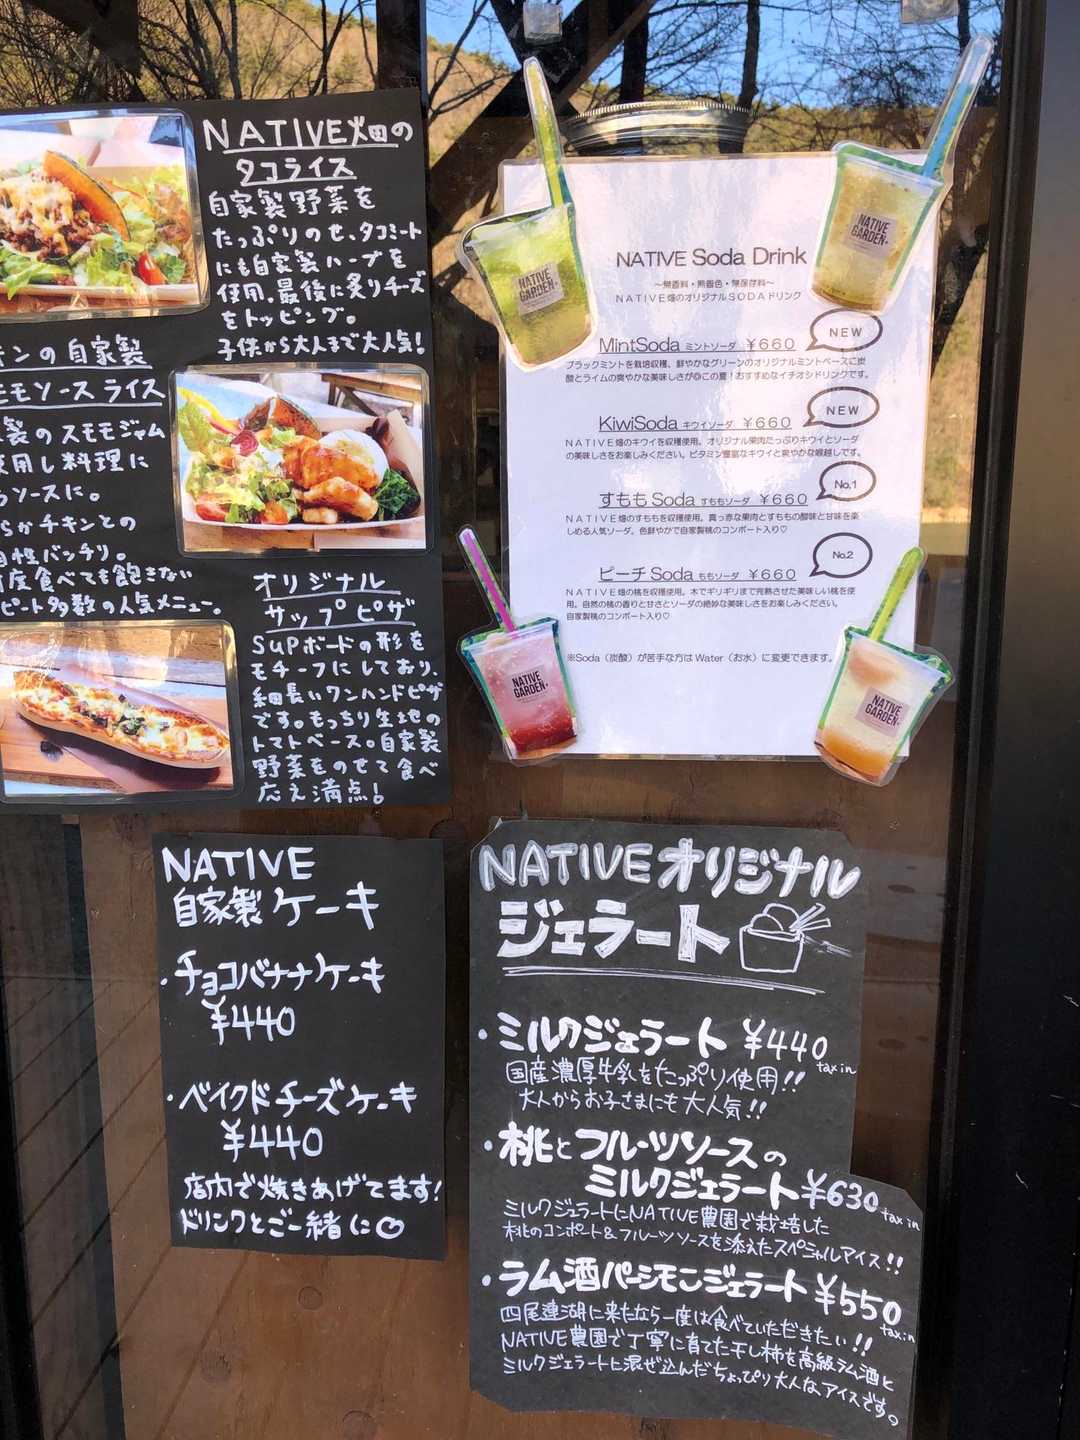 NATIVE畑の
タコライス
自家製野菜を
たっぷりのせ、タコミート
にも自家製ハーブを
使用。最後に炙りチーズ
をトッピング。
子供から大人まで大人気!
キンの自家製
モモソースライス
製のスモモジャム
使用し料理に
うソースに。
らかチキンとの
相性バッチリ。
何度食べても飽きない
ピート多数の人気メニュー。
オリジナル
サップピザ
SUPボードの形を
モチーフにしており、
細長いワンハンドピザ
です。もっちり生地の
トマトベース。自家製
野菜をのせて食べ
応え満点!
NATIVE Soda Drink
〜無香料・無着色・無保存料〜
NATIVE畑のオリジナルSODAドリンク
MintSoda ミントソーダ ¥660 NEW
ブラックミントを栽培収穫、鮮やかなグリーンのオリジナルミントベースに炭
酸とライムの爽やかな美味しさが◎この夏!おすすめなイチオシドリンクです。
KiwiSoda キウイソーダ ¥660 NEW
NATIVE畑のキウイを収穫使用。オリジナル果肉たっぷりキウイとソーダ
の美味しさをお楽しみください。ビタミン豊富なキウイと爽やかな喉越しです。
すももSoda すももソーダ ¥660 No.1
NATIVE畑のすももを収穫使用。真っ赤な果肉とすももの酸味と甘味を楽
しめる人気ソーダ。色鮮やかで自家製桃のコンポート入り♡
ピーチSoda ももソーダ ¥660 No.2
NATIVE畑の桃を収穫使用。木でギリギリまで完熟させた美味しい桃を使
用。自然の桃の香りと甘さとソーダの絶妙な美味しさをお楽しみください。
自家製桃のコンポート入り♡
※Soda（炭酸）が苦手な方はWater（お水）に変更できます。
NATIVE
GARDEN
NATIVE
GARDEN
NATIVE
GARDEN
NATIVE
GARDEN
NATIVE
自家製ケーキ
・チョコバナナケーキ
¥440
・ベイクドチーズケーキ
¥440
店内で焼きあげてます!
ドリンクとご一緒に♡
NATIVEオリジナル
ジェラート
・ミルクジェラート ¥440 tax in
国産濃厚牛乳をたっぷり使用!!
大人からお子さまにも大人気!!
・桃とフルーツソースの
ミルクジェラート ¥630 tax in
ミルクジェラートにNATIVE農園で栽培した
桃のコンポート&フルーツソースを添えたスペシャルアイス!!
・ラム酒パーシモンジェラート ¥550 tax in
四尾連湖に来たなら一度は食べていただきたい!!
NATIVE農園で丁寧に育てた干し柿を高級ラム酒と
ミルクジェラートに混ぜ込んだちょっぴり大人なアイスです。